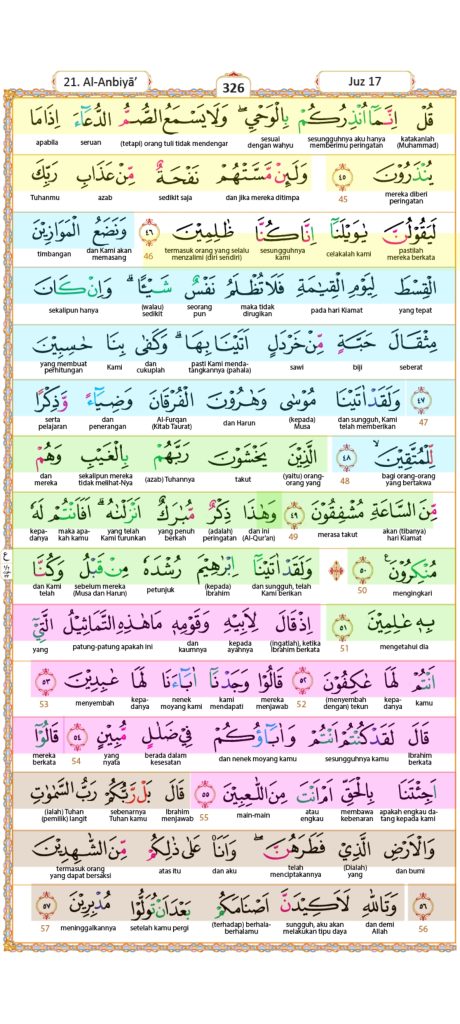 21. Al-Anbiyā’
326
Juz 17
قُلْ اِنَّمَآ اُنْذِرُكُمْ بِالْوَحْيِۖ وَلَا يَسْمَعُ الصُّمُّ الدُّعَاۤءَ اِذَا مَا
katakanlah (Muhammad) sesungguhnya aku hanya memberimu peringatan sesuai dengan wahyu (tetapi) orang tuli tidak mendengar seruan apabila
يُنْذَرُوْنَ ٤٥ وَلَىِٕنْ مَّسَّتْهُمْ نَفْحَةٌ مِّنْ عَذَابِ رَبِّكَ
mereka diberi peringatan 45 dan jika mereka ditimpa sedikit saja azab Tuhanmu
لَيَقُوْلُنَّ يٰوَيْلَنَآ اِنَّا كُنَّا ظٰلِمِيْنَ ٤٦ وَنَضَعُ الْمَوَازِيْنَ
pastilah mereka berkata celakalah kami sesungguhnya kami termasuk orang yang selalu menzalimi (diri sendiri) 46 dan Kami akan memasang timbangan
الْقِسْطَ لِيَوْمِ الْقِيٰمَةِ فَلَا تُظْلَمُ نَفْسٌ شَيْـًٔاۗ وَاِنْ كَانَ
yang tepat pada hari Kiamat maka tidak dirugikan seorang pun (walau) sedikit sekalipun hanya
مِثْقَالَ حَبَّةٍ مِّنْ خَرْدَلٍ اَتَيْنَا بِهَاۗ وَكَفٰى بِنَا حٰسِبِيْنَ
seberat biji sawi pasti Kami menda-tangkannya (pahala) dan cukuplah Kami yang membuat perhitungan
٤٧ وَلَقَدْ اٰتَيْنَا مُوْسٰى وَهٰرُوْنَ الْفُرْقَانَ وَضِيَاۤءً وَّذِكْرًا
47 dan sungguh, Kami telah memberikan (kepada) Musa dan Harun Al-Furqan (Kitab Taurat) dan penerangan serta pelajaran
لِّلْمُتَّقِيْنَ ۙ ٤٨ الَّذِيْنَ يَخْشَوْنَ رَبَّهُمْ بِالْغَيْبِ وَهُمْ
bagi orang-orang yang bertakwa 48 (yaitu) orang-orang yang takut (azab) Tuhannya sekalipun mereka tidak melihat-Nya dan mereka
مِّنَ السَّاعَةِ مُشْفِقُوْنَ ٤٩ وَهٰذَا ذِكْرٌ مُّبٰرَكٌ اَنْزَلْنٰهُۗ اَفَاَنْتُمْ لَهٗ
akan (tibanya) hari Kiamat merasa takut 49 dan ini (Al-Qur’an) (adalah) peringatan yang penuh berkah yang telah Kami turunkan maka apa-kah kamu kepa-danya
مُنْكِرُوْنَ ࣖ ٥٠ وَلَقَدْ اٰتَيْنَآ اِبْرٰهِيْمَ رُشْدَهٗ مِنْ قَبْلُ وَكُنَّا
mengingkari 50 dan sungguh, telah Kami berikan (kepada) Ibrahim petunjuk sebelum mereka (Musa dan Harun) dan Kami telah
بِهٖ عٰلِمِيْنَ ٥١ اِذْ قَالَ لِاَبِيْهِ وَقَوْمِهٖ مَا هٰذِهِ التَّمَاثِيْلُ الَّتِيْٓ
mengetahui dia 51 (ingatlah), ketika Ibrahim berkata kepada ayahnya dan kaumnya patung-patung apakah ini yang
اَنْتُمْ لَهَا عٰكِفُوْنَ ٥٢ قَالُوْا وَجَدْنَآ اٰبَاۤءَنَا لَهَا عٰبِدِيْنَ ٥٣
kamu kepa-danya (menyembah dengan) tekun 52 mereka menjawab kami mendapati nenek moyang kami kepa-danya menyembah 53
قَالَ لَقَدْ كُنْتُمْ اَنْتُمْ وَاٰبَاۤؤُكُمْ فِيْ ضَلٰلٍ مُّبِيْنٍ ٥٤ قَالُوْٓا
Ibrahim berkata sesungguhnya kamu dan nenek moyang kamu berada dalam kesesatan yang nyata 54 mereka berkata
اَجِئْتَنَا بِالْحَقِّ اَمْ اَنْتَ مِنَ اللّٰعِبِيْنَ ٥٥ قَالَ بَلْ رَّبُّكُمْ رَبُّ السَّمٰوٰتِ
apakah engkau da-tang kepada kami membawa kebenaran atau engkau main-main 55 Ibrahim menjawab sebenarnya Tuhan kamu (ialah) Tuhan (pemilik) langit
وَالْاَرْضِ الَّذِيْ فَطَرَهُنَّۖ وَاَنَا۠ عَلٰى ذٰلِكُمْ مِّنَ الشّٰهِدِيْنَ
dan bumi (Dialah) yang telah menciptakannya dan aku atas itu termasuk orang yang dapat bersaksi
٥٦ وَتَاللّٰهِ لَاَكِيْدَنَّ اَصْنَامَكُمْ بَعْدَ اَنْ تُوَلُّوْا مُدْبِرِيْنَ ٥٧
56 dan demi Allah sungguh, aku akan melakukan tipu daya (terhadap) berhala-berhalamu setelah kamu pergi meninggalkannya 57